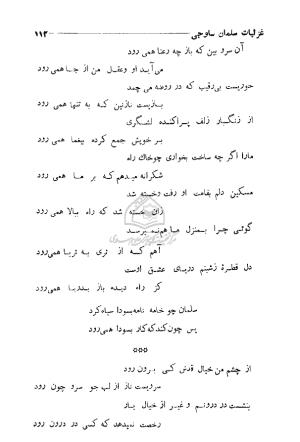 غزلیات سلمان ساوجی ۱۱۳
آن سرو بین که باز چه رعنا همی رود
می‌آید او وعقل من از جا همی رود
حوریست بی‌رقیب که در روضه می چمد
یا زیست نازنین که به تنها همی رود
از زنگبار زلف پراکنده لشگری
بر خویش جمع کرده بیغما همی رود
مارا اگر چه ساخت بخواری چوخاک راه
شکرانه میدهم که بر ما همی رود
مسکین دلم بقامت او رفت و خسته شد
زان خسته شد که راه ببالا همی رود
گوئی چرا بمنزل ما هم نمیرسد
آهم که از ثری به ثریا همی رود
دل قطرهٔ زشبنم دریای عشق اوست
کز راه دیده باز بدریا همی رود
سلمان چو خامه نامه بسودا سیاه کرد
پس چون کند که کار بسودا همی رود
***
از چشم من خیال قدش کی برون رود
سرویست ناز از لب جو سرو چون رود
بنشست در درونم و غیر از خیال یار
رخصت نمیدهد که کسی در درون رود